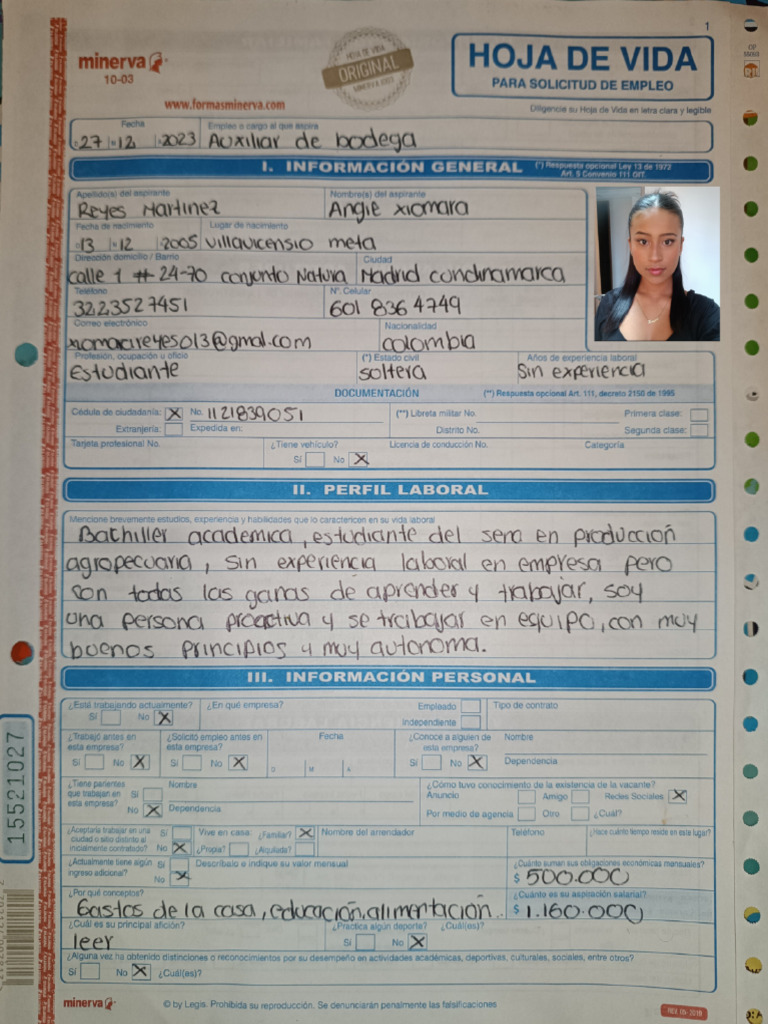 1
minerva
10-03
HOJA DE VIDA
ORIGINAL
MINERVA 1003
HOJA DE VIDA
PARA SOLICITUD DE EMPLEO
www.formasminerva.com
Diligencie su Hoja de Vida en letra clara y legible
Fecha Empleo o cargo al que aspira
27 12 2023 Auxiliar de bodega
I. INFORMACIÓN GENERAL (*) Respuesta opcional Ley 13 de 1972
Art. 5 Convenio 111 OIT.
Apellido(s) del aspirante Nombre(s) del aspirante
Reyes Martinez Angie xiomara
Fecha de nacimiento Lugar de nacimiento
13 12 2005 villavicensio meta
Dirección domicilio / Barrio Ciudad
calle 1 # 24-70 conjunto Natura Madrid cundinamarca
Teléfono N°. Celular
3223527451 601 836 4749
Correo electrónico Nacionalidad
colombia
Profesión, ocupación u oficio (*) Estado civil Años de experiencia laboral
Estudiante soltera Sin experiencia
DOCUMENTACIÓN (**) Respuesta opcional Art. 111, decreto 2150 de 1995
Cédula de ciudadanía: X No. 1121839051 (**) Libreta militar No. Primera clase:
Extranjería: Expedida en: Distrito No. Segunda clase:
Tarjeta profesional No. ¿Tiene vehículo? Licencia de conducción No. Categoría
Sí No X
II. PERFIL LABORAL
Mencione brevemente estudios, experiencia y habilidades que lo caractericen en su vida laboral
Bathiller academica, estudiante del sena en producción
agropecuaria, sin experiencia laboral en empresa pero
con todas las ganas de aprender y trabajar, soy
una persona proactiva y se trabajar en equipo, con muy
buenos principios y muy autonoma.
III. INFORMACIÓN PERSONAL
¿Está trabajando actualmente? ¿En qué empresa? Empleado Tipo de contrato
Sí No X Independiente
¿Trabajó antes en esta empresa? ¿Solicitó empleo antes en esta empresa? Fecha ¿Conoce a alguien de esta empresa? Nombre
Sí No X Sí No X D M A Sí No X Dependencia
¿Tiene parientes que trabajan en esta empresa? Sí No X Nombre
Dependencia
¿Cómo tuvo conocimiento de la existencia de la vacante?
Anuncio Amigo Redes Sociales X
Por medio de agencia Otro ¿Cuál?
¿Aceptaría trabajar en una ciudad o sitio distinto al inicialmente contratado? Sí No X Vive en casa: ¿Familiar? X ¿Propia? ¿Alquilada? Nombre del arrendador Teléfono ¿Hace cuánto tiempo reside en este lugar?
¿Actualmente tiene algún ingreso adicional? Sí No X Descríbalo e indique su valor mensual ¿Cuánto suman sus obligaciones económicas mensuales?
$ 500.000
¿Por qué conceptos? ¿Cuánto es su aspiración salarial?
Gastos de la casa, educación, alimentación $ 1.160.000
¿Cuál es su principal afición? ¿Practica algún deporte? ¿Cuál(es)?
leer Sí No X
¿Alguna vez ha obtenido distinciones o reconocimientos por su desempeño en actividades académicas, deportivas, culturales, sociales, entre otros?
Sí No X ¿Cuál(es)?
minerva © by Legis. Prohibida su reproducción. Se denunciarán penalmente las falsificaciones
15521027